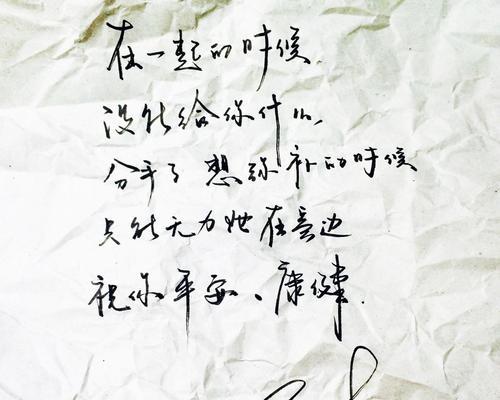 在一起的时候
没能给你什么,
分手了 想弥补的时候
只能无力地在旁边
祝你平安、康健.